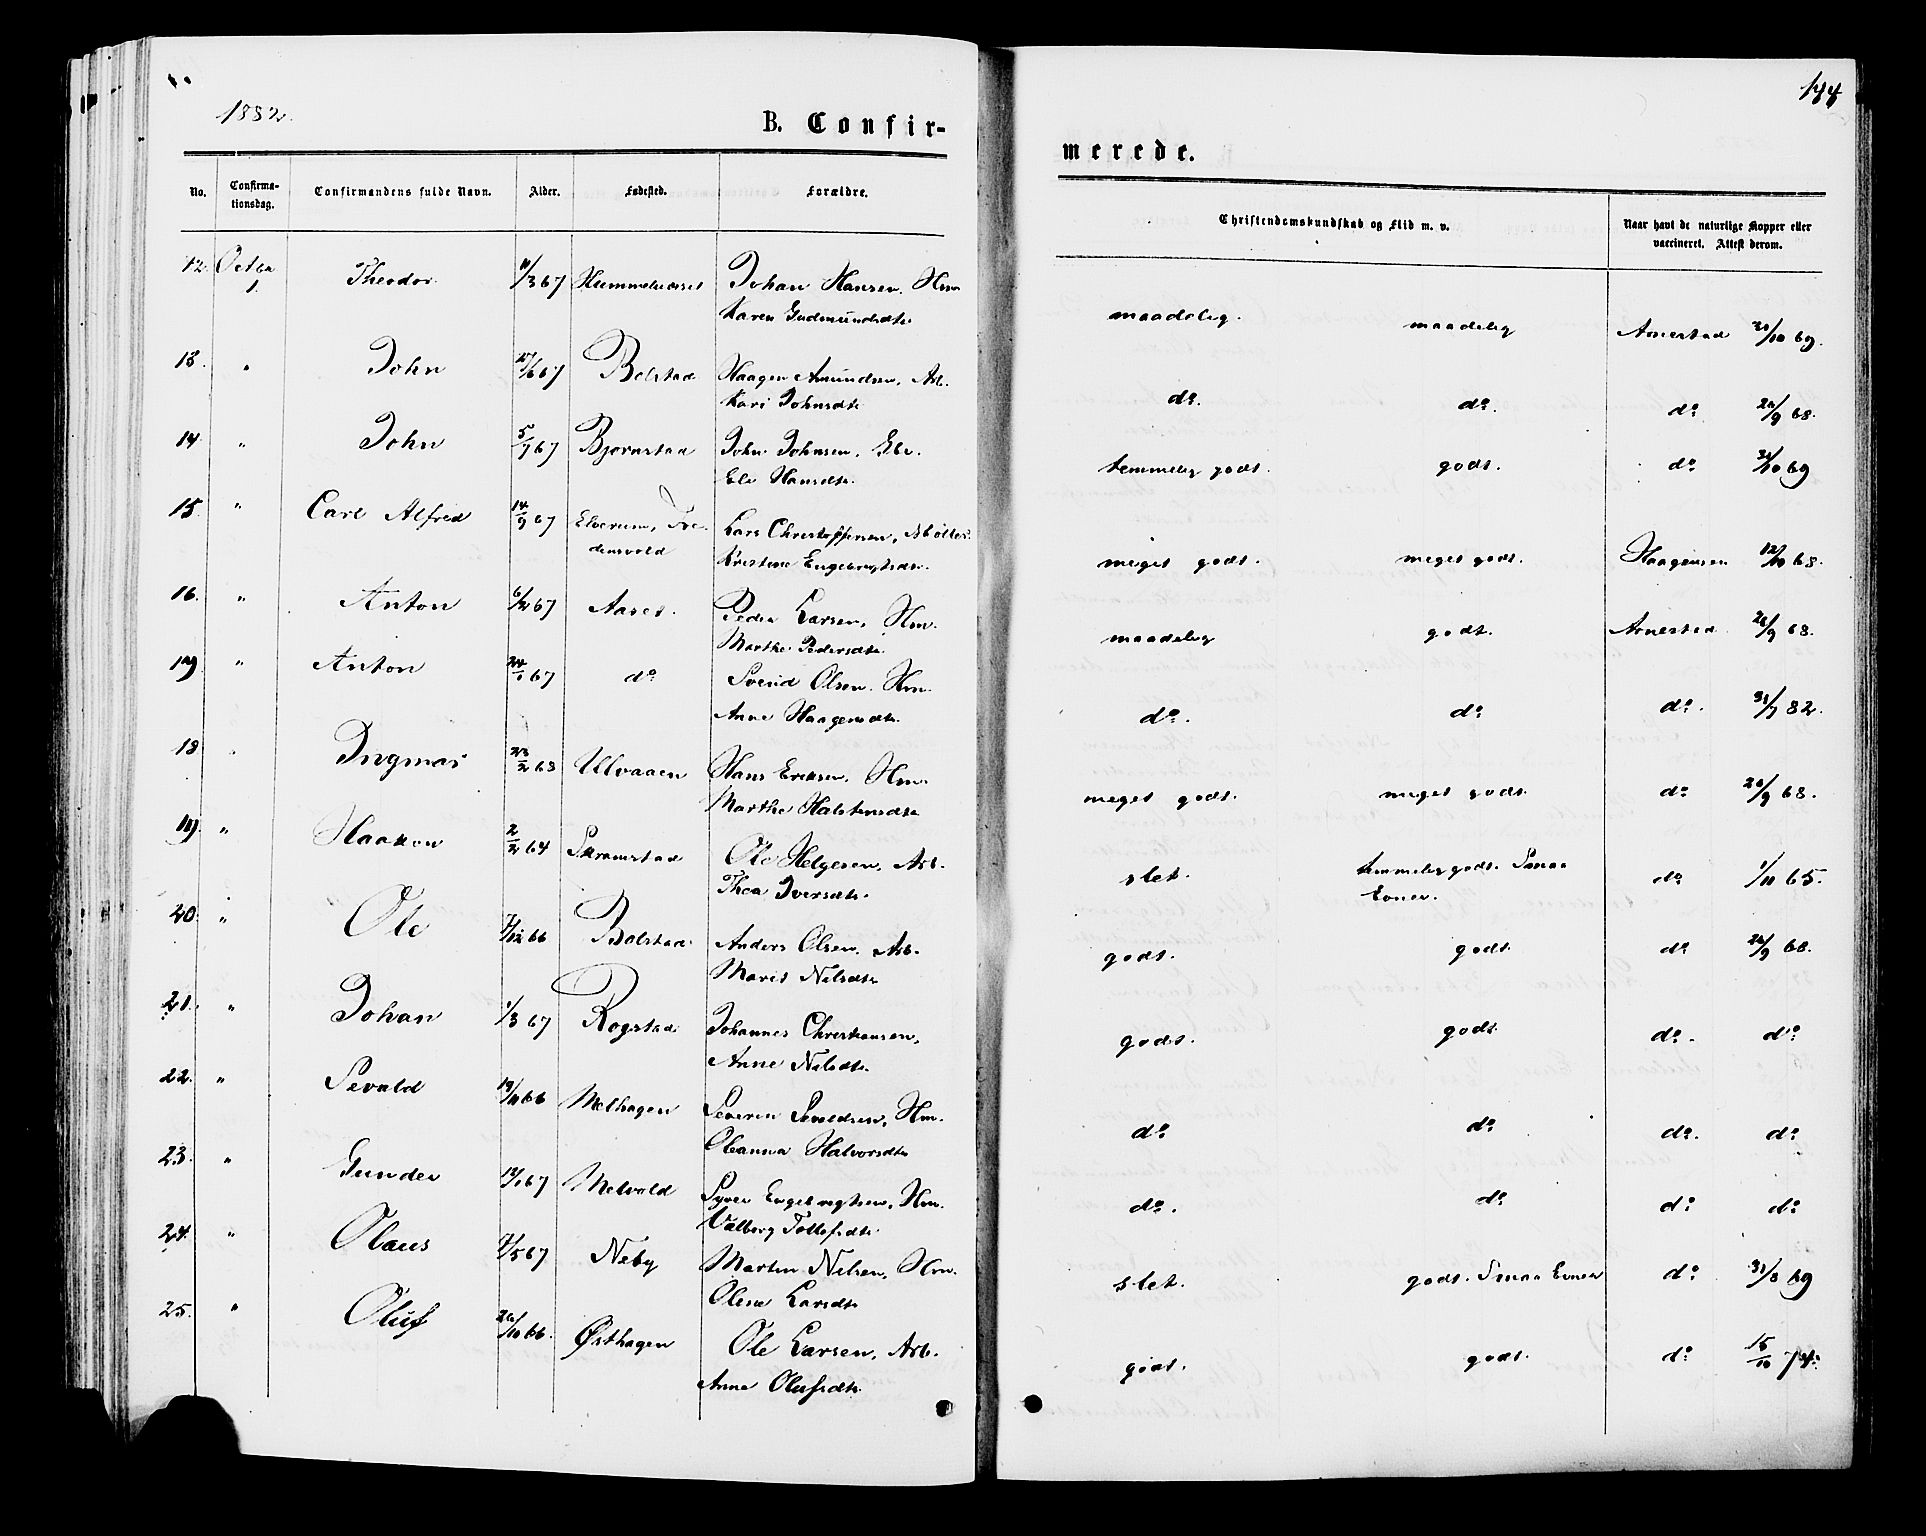 1882.
B. Confir-
merede.
144
No. Confirma-tionsdag. Confirmandens fulde Navn. Alder. Fødested. Forældre. Christendomskundskab og Flid m. v. Naar havt de naturlige Kopper eller vaccineret. Attest derom.
12. Octbr 1. Theodor. 11/3 67 Johan Hansen. Hm maadelig. maadelig Arnestad /10 69.
Karen Gudmundsdtr
13. " John /6 67 Bolstad Haagen Amundsen, Arb. do. do. do /9 68.
Kari Johnsdtr
14. " John 5/7 67 Bjørnstad John Johnsen, temmelig godt. godt. do /10 69
Eli Hansdtr.
15. " Carl Alfred 14/9 67 Elverum, Fre- Lars Christoffersen, meget godt. meget godt. Haagensen 12/10 68.
densvold Kristine Engebregtsdtr.
16. " Anton 6/2 67 Aaset. Peder Larsen, Hm. maadelig godt. Arnestad 26/9 68.
Marthe Pedersdtr
17 " Anton 24/1 67 do Svend Olsen. Hm. do. do do. 31/7 82.
Anne Haagensdtr.
18 " Ingmar 23/2 68 Ulvaaen Hans Eriksen. Hm. meget godt. meget godt do 26/9 68.
Marthe Halstensdtr
19. " Haakon 2/2 64 Skramstad Ole Helgesen, Arb. slet. temmelig godt. Smaa do 1/11 65.
Thea Iversdtr. Evner.
20. " Ole /12 66 Bolstad Anders Olsen. Arb. godt. godt do 26/9 68.
Marit Nilsdtr
21. " Johan 1/3 67 Rogstad Johannes Christiansen, godt. godt do. do
Anne Nilsdtr.
22. " Sevald 19/11 66 Melhagen Severin Sevaldsen, Hm. do do do. do
Oleanna Halvorsdtr
23. " Gunder 12/1 67 Melvold Syver Engebregtsen, Hm. do. do do do
Valborg Tollefsdtr
24. " Olaus /5 67 Neby Martin Nilsen, Hm. slet. godt. Smaa Evner do 31/8 69
Oline Larsdtr
25. " Oluf 26/10 66. Østhagen Ole Larsen, Arb. godt. godt. do 15/10 74.
Anne Olufsdtr.